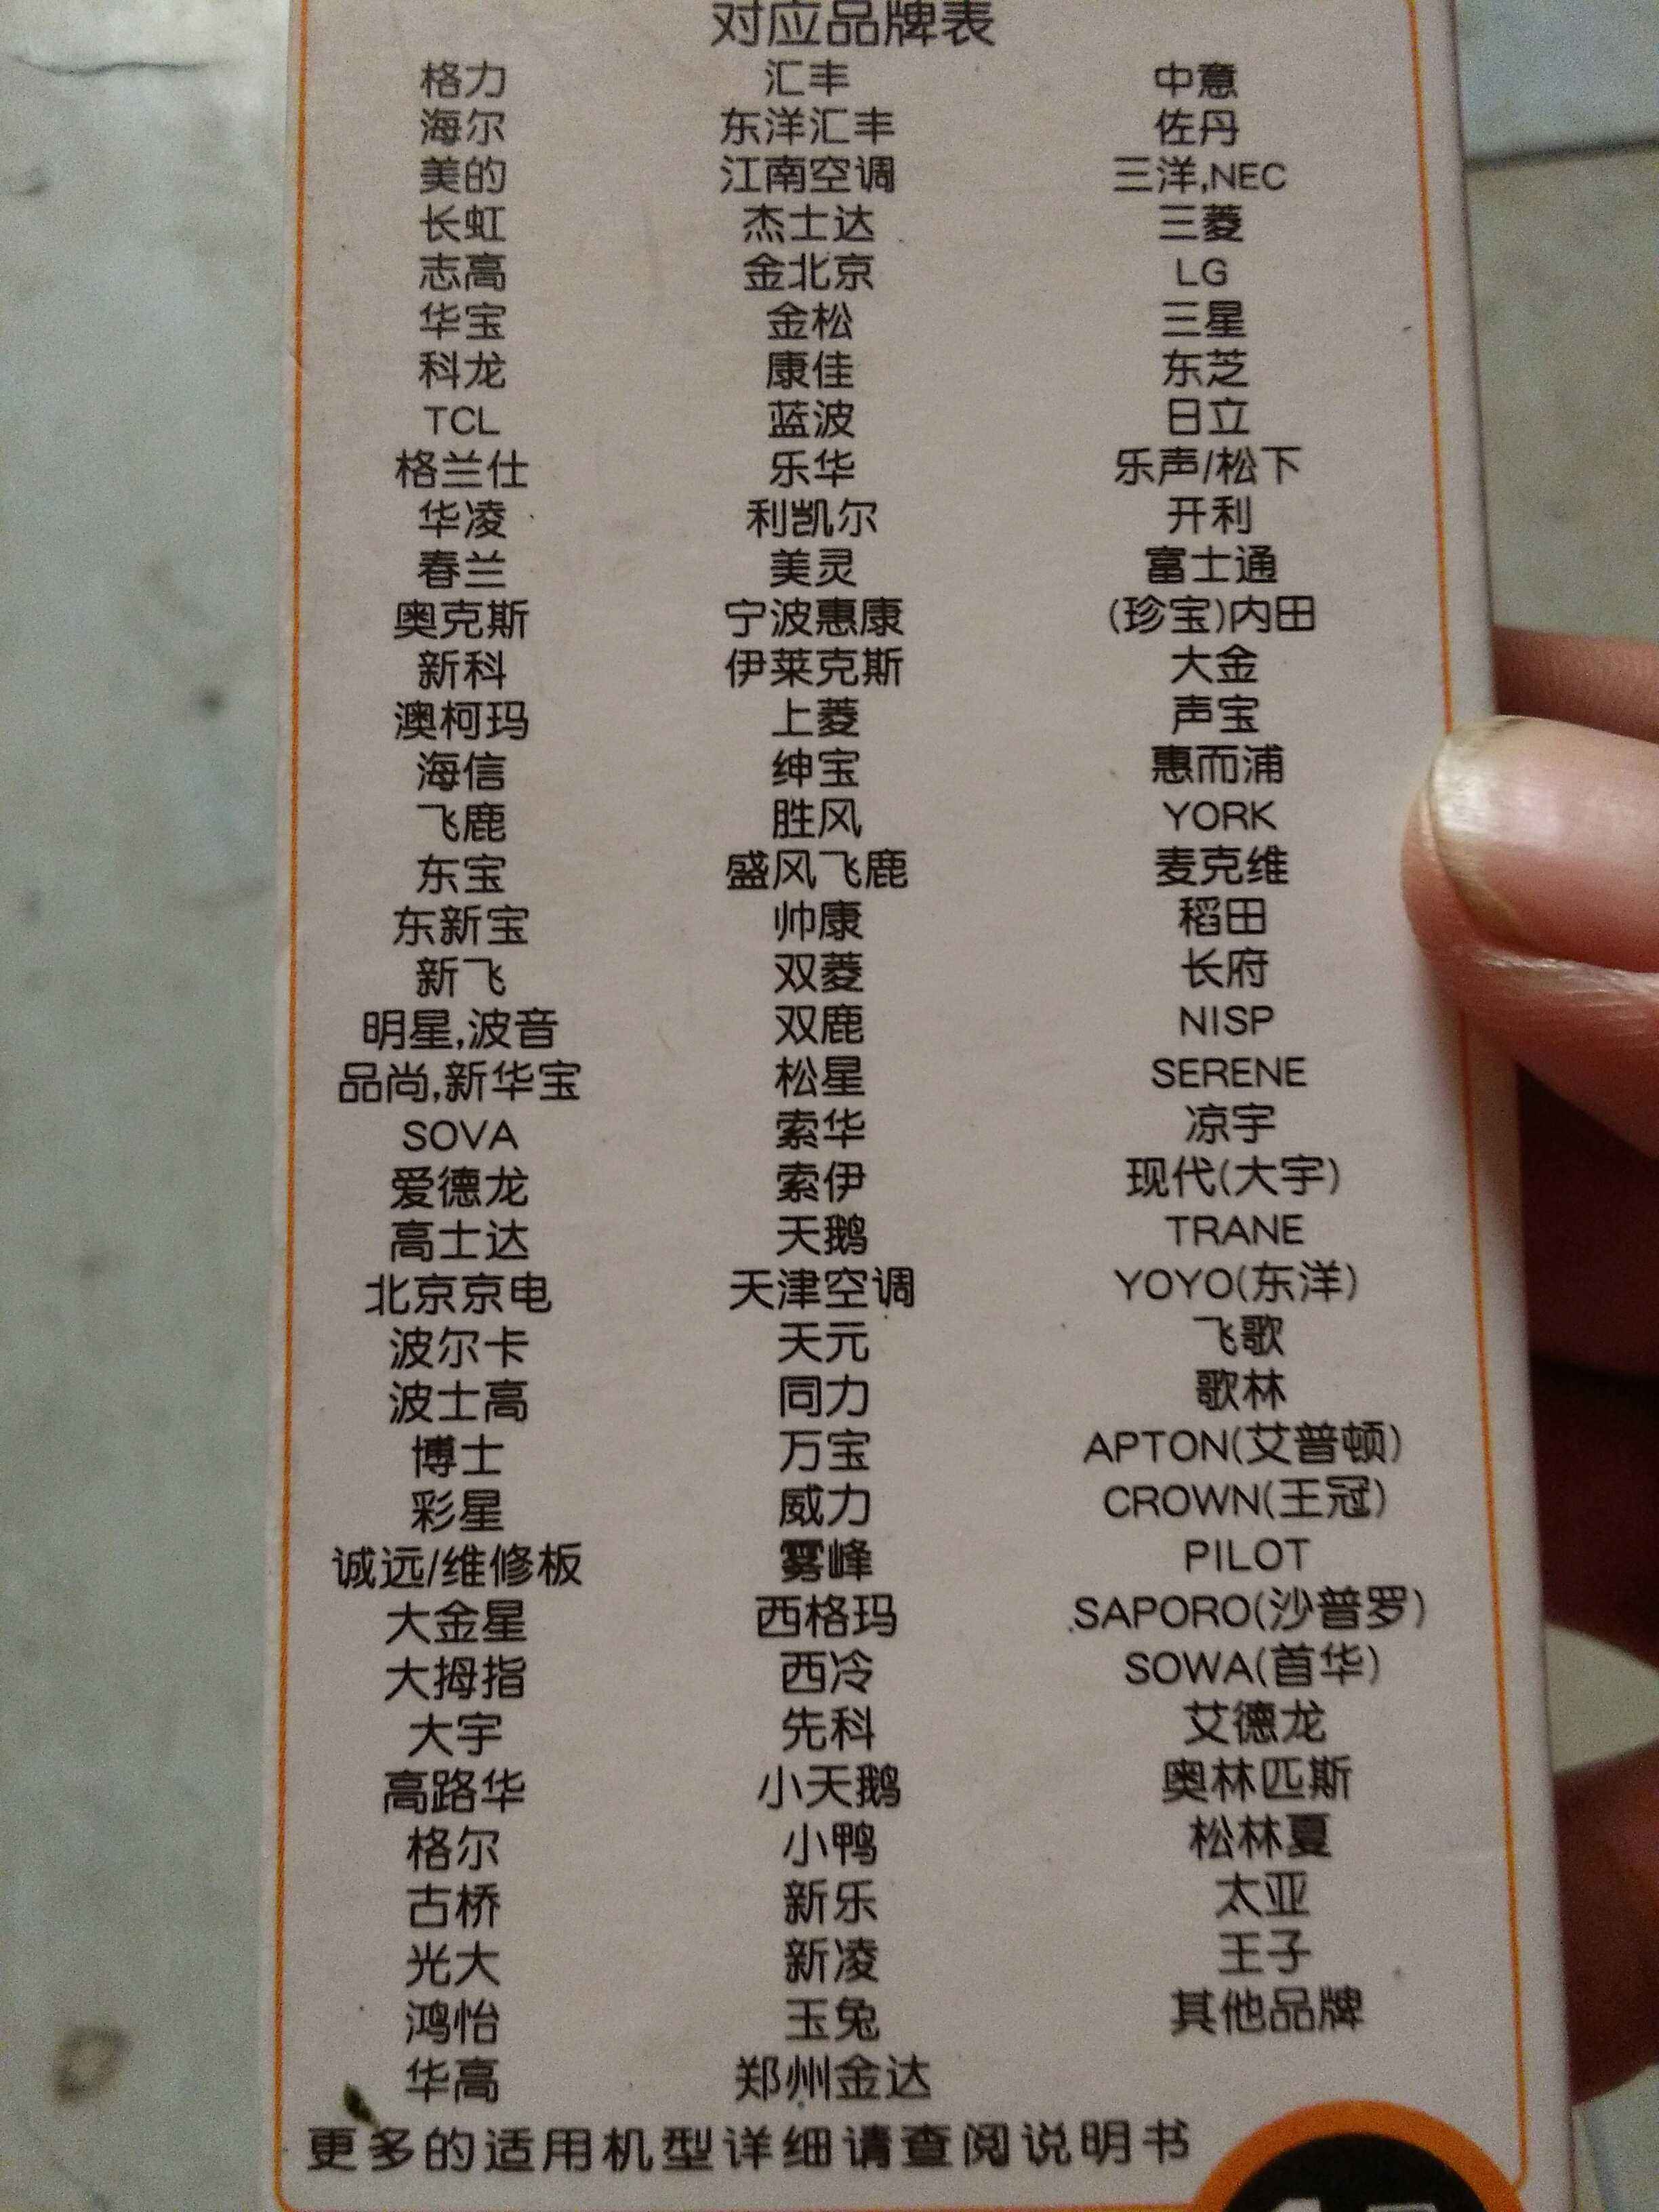 对应品牌表
格力 汇丰 中意
海尔 东洋汇丰 佐丹
美的 江南空调 三洋,NEC
长虹 杰士达 三菱
志高 金北京 LG
华宝 金松 三星
科龙 康佳 东芝
TCL 蓝波 日立
格兰仕 乐华 乐声/松下
华凌 利凯尔 开利
春兰 美灵 富士通
奥克斯 宁波惠康 (珍宝)内田
新科 伊莱克斯 大金
澳柯玛 上菱 声宝
海信 绅宝 惠而浦
飞鹿 胜风 YORK
东宝 盛风飞鹿 麦克维
东新宝 帅康 稻田
新飞 双菱 长府
明星,波音 双鹿 NISP
品尚,新华宝 松星 SERENE
SOVA 索华 凉宇
爱德龙 索伊 现代(大宇)
高士达 天鹅 TRANE
北京京电 天津空调 YOYO(东洋)
波尔卡 天元 飞歌
波士高 同力 歌林
博士 万宝 APTON(艾普顿)
彩星 威力 CROWN(王冠)
诚远/维修板 雾峰 PILOT
大金星 西格玛 SAPORO(沙普罗)
大拇指 西冷 SOWA(首华)
大宇 先科 艾德龙
高路华 小天鹅 奥林匹斯
格尔 小鸭 松林夏
古桥 新乐 太亚
光大 新凌 王子
鸿怡 玉兔 其他品牌
华高 郑州金达
更多的适用机型详细请查阅说明书